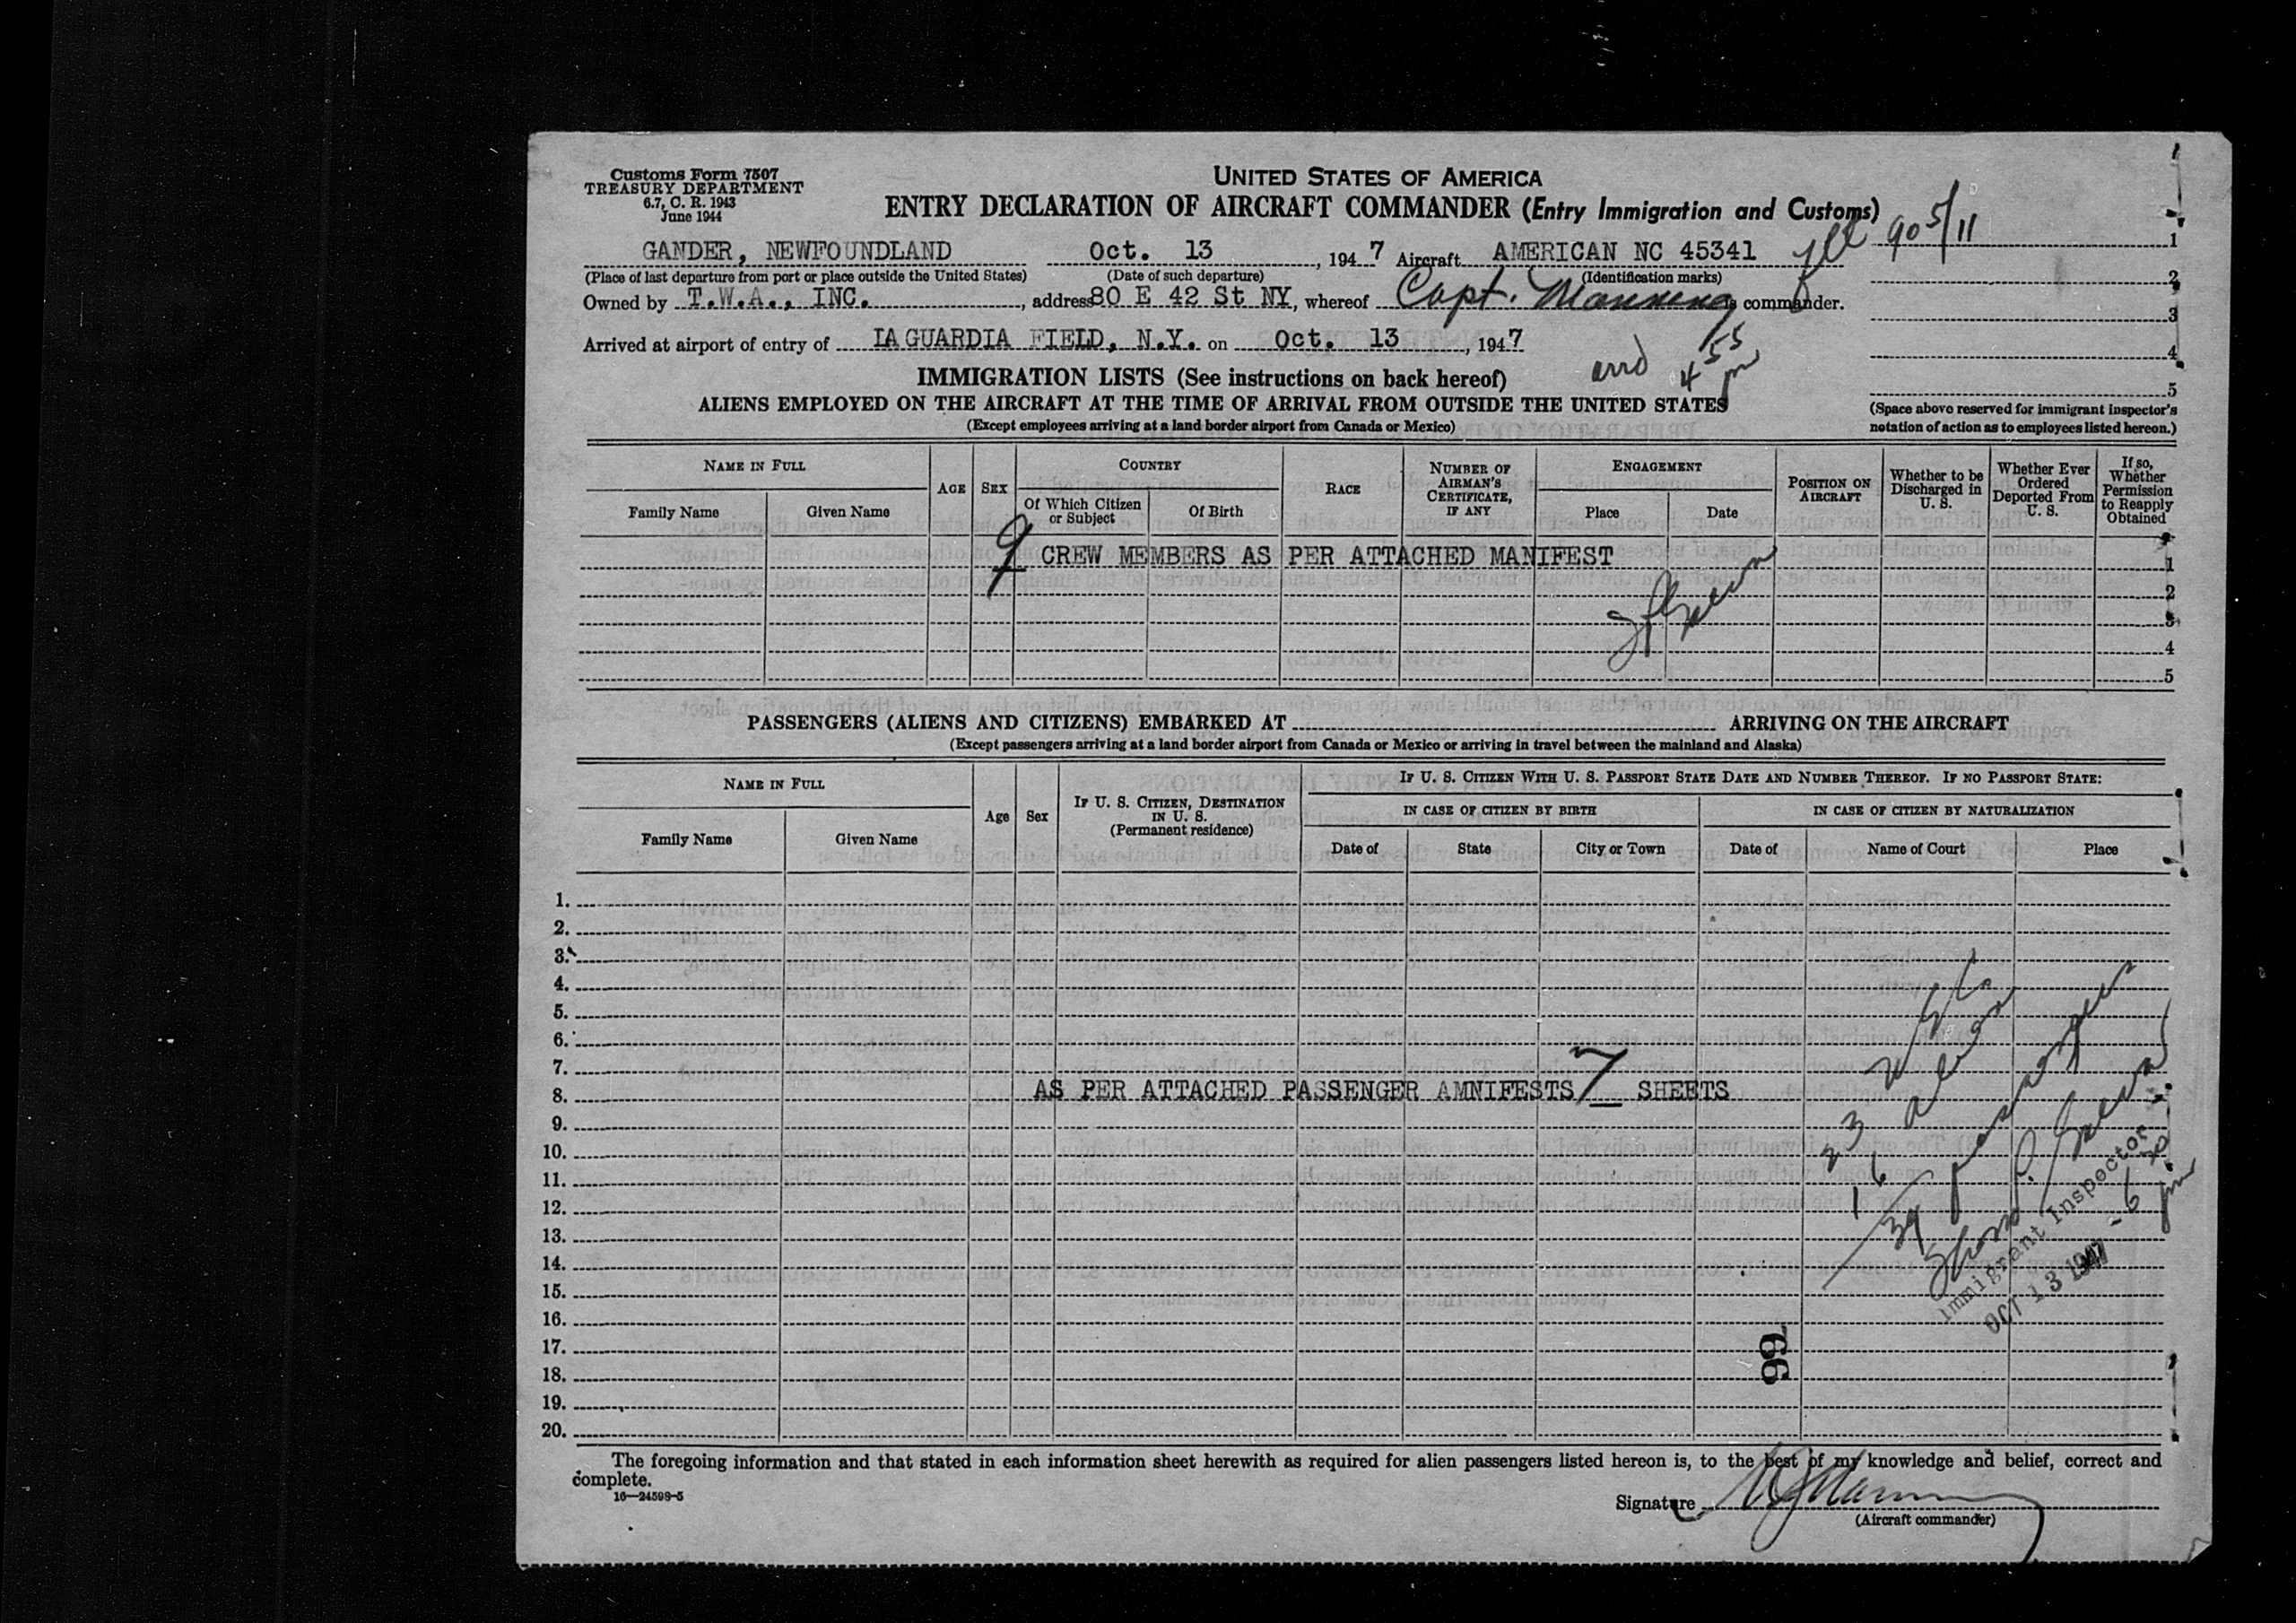 Customs Form 7507
TREASURY DEPARTMENT
6.7, C. R. 1943
June 1944
UNITED STATES OF AMERICA
ENTRY DECLARATION OF AIRCRAFT COMMANDER (Entry Immigration and Customs)
GANDER, NEWFOUNDLAND Oct. 13, 1947 Aircraft AMERICAN NC 45341 905/11 1
(Place of last departure from port or place outside the United States) (Date of such departure) (Identification marks) 2
Owned by T.W.A., INC., address 80 E 42 St NY, whereof Capt. Manning is commander.
3
Arrived at airport of entry of LA GUARDIA FIELD, N.Y. on Oct. 13, 1947
arrd 4 55 pm
4
IMMIGRATION LISTS (See instructions on back hereof)
5
ALIENS EMPLOYED ON THE AIRCRAFT AT THE TIME OF ARRIVAL FROM OUTSIDE THE UNITED STATES
(Except employees arriving at a land border airport from Canada or Mexico)
(Space above reserved for immigrant inspector's
notation of action as to employees listed hereon.)
NAME IN FULL
Family Name Given Name
AGE SEX
COUNTRY
Of Which Citizen or Subject Of Birth
RACE
NUMBER OF AIRMAN'S CERTIFICATE, IF ANY
ENGAGEMENT
Place Date
POSITION ON AIRCRAFT
Whether to be Discharged in U. S.
Whether Ever Ordered Deported From U. S.
If so, Whether Permission to Reapply Obtained
9 CREW MEMBERS AS PER ATTACHED MANIFEST 1
2
3
4
5
PASSENGERS (ALIENS AND CITIZENS) EMBARKED AT ARRIVING ON THE AIRCRAFT
(Except passengers arriving at a land border airport from Canada or Mexico or arriving in travel between the mainland and Alaska)
NAME IN FULL
Family Name Given Name
Age Sex
IF U. S. CITIZEN, DESTINATION IN U. S.
(Permanent residence)
IF U. S. CITIZEN WITH U. S. PASSPORT STATE DATE AND NUMBER THEREOF. IF NO PASSPORT STATE:
IN CASE OF CITIZEN BY BIRTH IN CASE OF CITIZEN BY NATURALIZATION
Date of State City or Town Date of Name of Court Place
1.
2.
3.
4.
5.
6.
7.
8. AS PER ATTACHED PASSENGER AMNIFESTS 7 SHEETS
9.
10.
11.
12.
13.
14.
15.
16.
17.
18.
19.
20.
23 USC
16 aliens
39 passengers
Immigrant Inspector
OCT 13 1947 - 6 30 pm
799
The foregoing information and that stated in each information sheet herewith as required for alien passengers listed hereon is, to the best of my knowledge and belief, correct and
complete.
16—24598-5
Signature
(Aircraft commander)